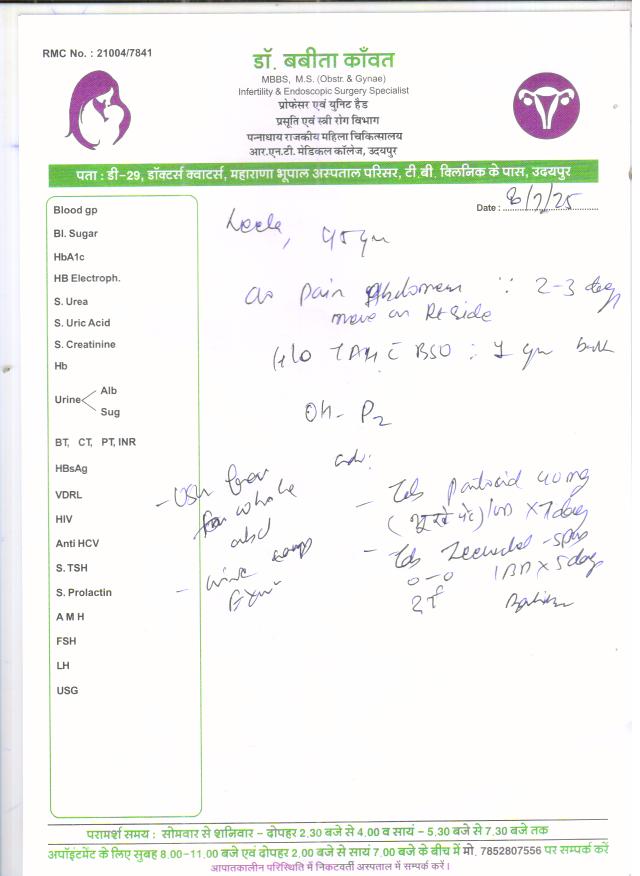 RMC No. : 21004/7841
डॉ. बबीता काँवत
MBBS, M.S. (Obstr. & Gynae)
Infertility & Endoscopic Surgery Specialist
प्रोफेसर एवं युनिट हैड
प्रसूति एवं स्त्री रोग विभाग
पन्नाधाय राजकीय महिला चिकित्सालय
आर.एन.टी. मेडिकल कॉलेज, उदयपुर
पता : डी-29, डॉक्टर्स क्वाटर्स, महाराणा भूपाल अस्पताल परिसर, टी.बी. क्लिनिक के पास, उदयपुर
Date : 8/7/25
Blood gp
Bl. Sugar
HbA1c
HB Electroph.
S. Urea
S. Uric Acid
S. Creatinine
Hb
Urine Alb
Sug
BT, CT, PT, INR
HBsAg
VDRL
HIV
Anti HCV
S. TSH
S. Prolactin
A M H
FSH
LH
USG
Leela, 45 yr
c/o Pain Abdomen ∵ 2-3 day
more on Rt side
H/o TAH c BSO : 1 yr back
OH - P2
adv:
- USG
for whole
abd
- urine
- Tab Pantocid 40 mg
(भूखे पेट) 1 OD x 7 day
- Tab
0-0 1 BD x 5 day
परामर्श समय : सोमवार से शनिवार – दोपहर 2.30 बजे से 4.00 व सायं – 5.30 बजे से 7.30 बजे तक
अपॉइंटमेंट के लिए सुबह 8.00-11.00 बजे एवं दोपहर 2.00 बजे से सायं 7.00 बजे के बीच में मो. 7852807556 पर सम्पर्क करें
आपातकालीन परिस्थिति में निकटवर्ती अस्पताल में सम्पर्क करें ।